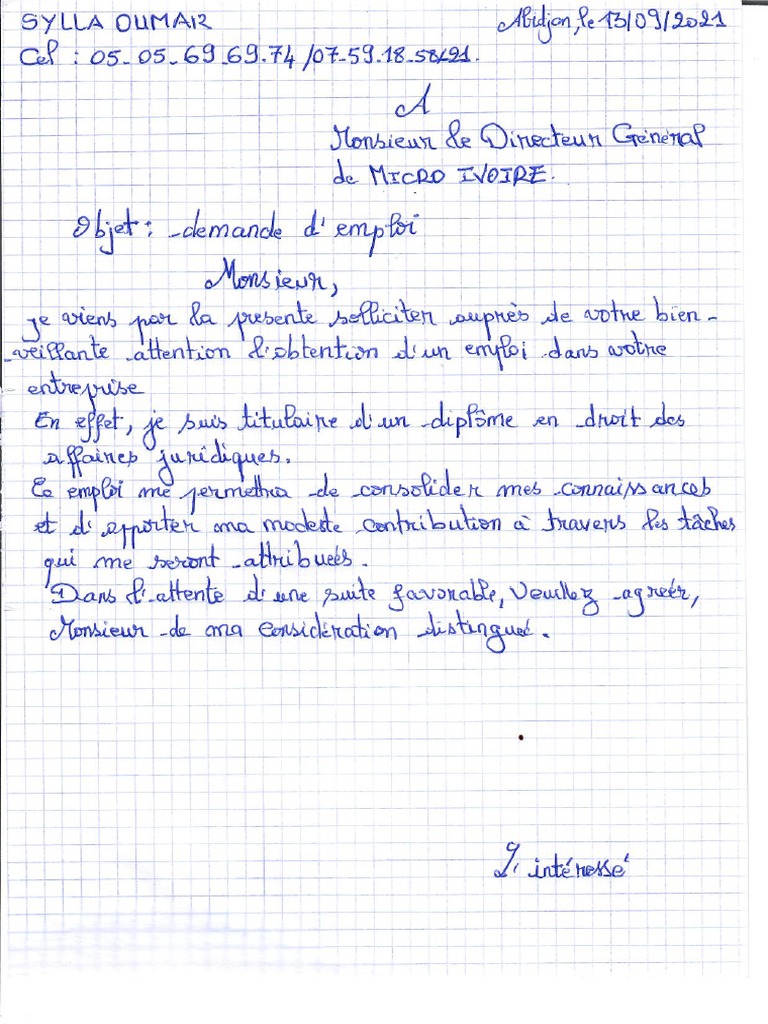 SYLLA OUMAR
Abidjan, le 13/09/2021
Cel : 05-05-69-69-74 / 07-59-18-58-21.
A
Monsieur le Directeur Général
de MICRO IVOIRE.
Objet : demande d'emploi
Monsieur,
je viens par la presente solliciter auprès de votre bien-
veillante attention l'obtention d'un emploi dans votre
entreprise
En effet, je suis titulaire d'un diplôme en droit des
affaires juridiques.
Ce emploi me permettra de consolider mes connaissances
et d'apporter ma modeste contribution à travers les tâches
qui me seront attribueés.
Dans l'attente d'une suite favorable, Veuillez agréér,
Monsieur de ma considération distingueé.
L'intéressé